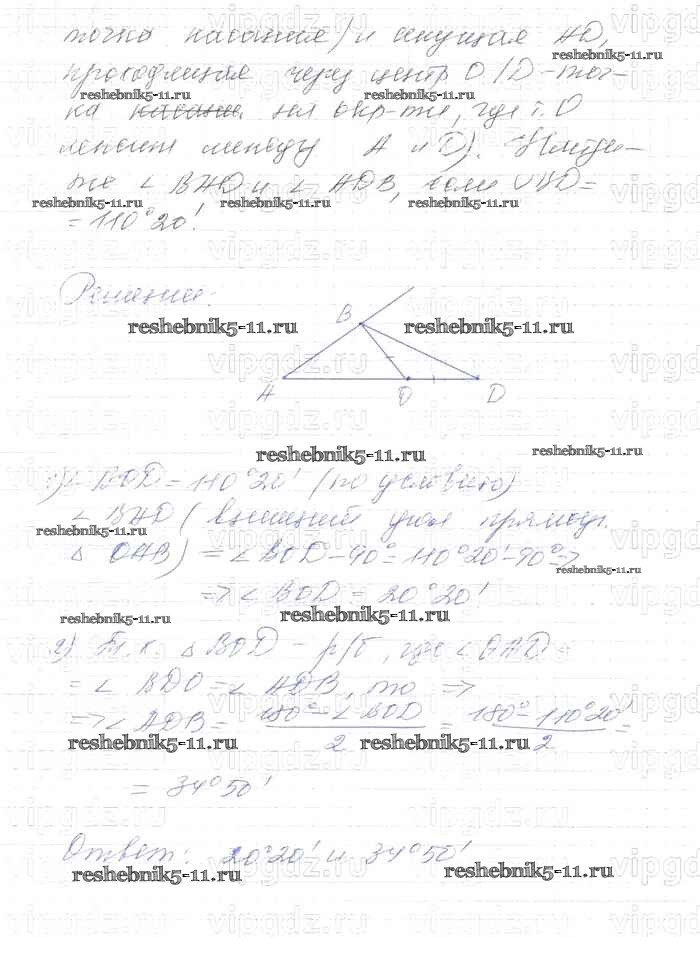 точка касания) и секущая AD,
проходящая через центр O (D – точ-
ка касания на окр-ти, где т. O
лежит между A и D). Найди-
те ∠ BAD и ∠ ADB, если ∪BD =
= 110°20'.
Решение:
B
A
O
D
1) ∠ BOD = 110°20' (по условию)
∠ BAD (внешний угол прямоуг.
△ OAB) = ∠ BOD – 90° = 110°20' – 90° =>
=> ∠ BOD = 20°20'
2) Т.к. △ BOD – р/б, где ∠ OAD
= ∠ BDO = ∠ ADB, то =>
=> ∠ ADB = 180° – ∠ BOD / 2 = 180° – 110°20' / 2 =
= 34°50'
Ответ: 20°20' и 34°50'
reshebnik5-11.ru
vipgdz.ru